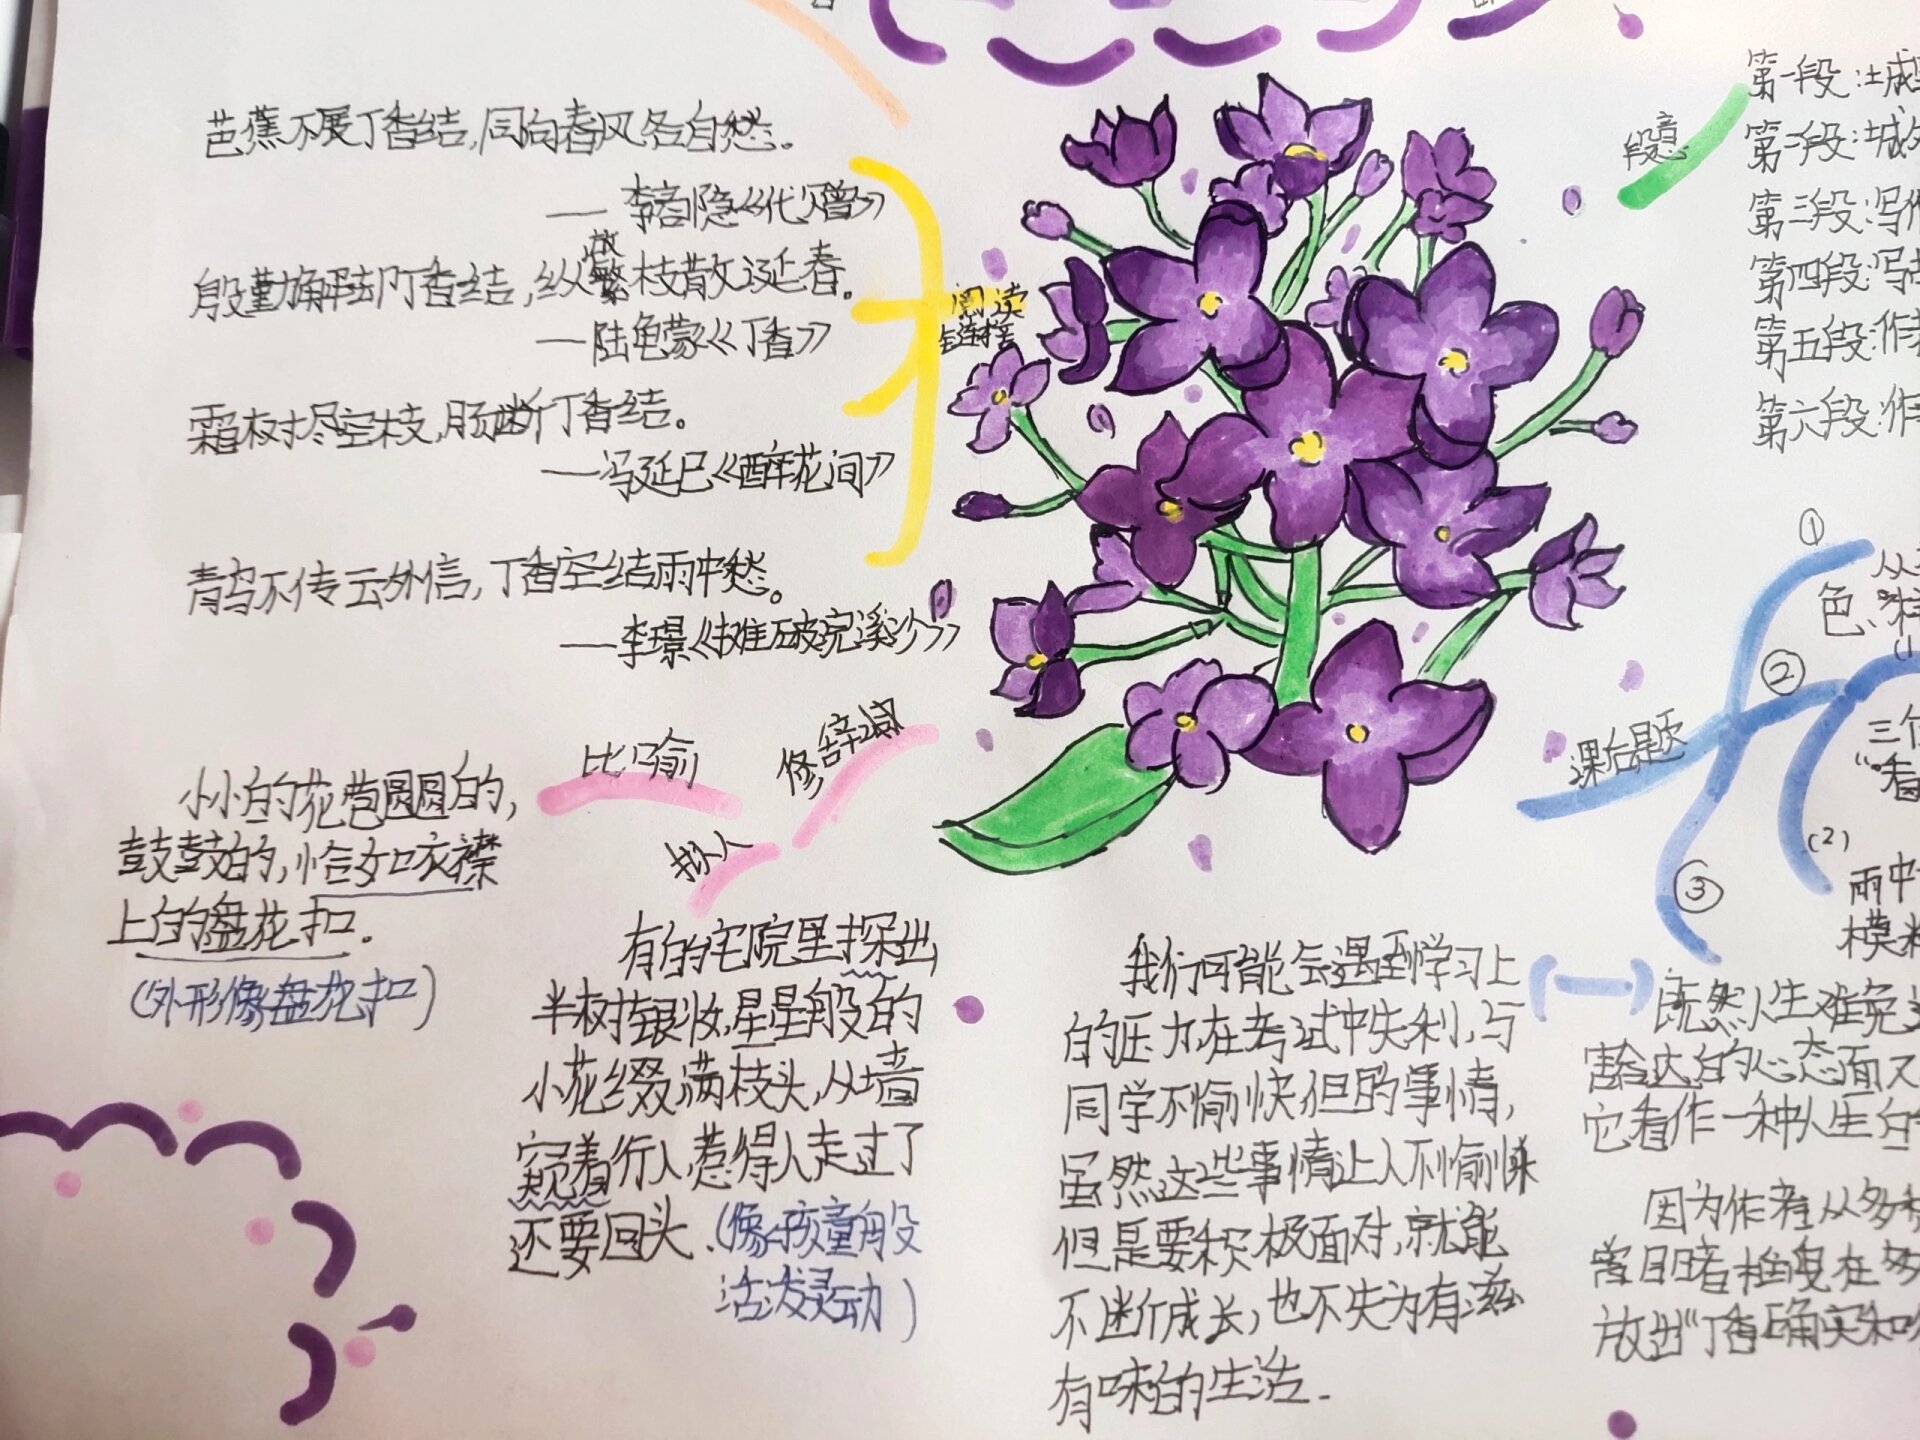 芭蕉不展丁香结,同向春风各自愁。
——李商隐《代赠》
殷勤解却丁香结,纵放繁枝散诞春。
——陆龟蒙《丁香》
霜树尽空枝,肠断丁香结。
——冯延巳《醉花间》
青鸟不传云外信,丁香空结雨中愁。
——李璟《摊破浣溪沙》
阅读
链接
修辞
比喻
小小的花苞圆圆的,
鼓鼓的,恰如衣襟
上的盘花扣.
(外形像盘花扣)
拟人
有的宅院里探出
半树银妆,星星般的
小花缀满枝头,从墙
窥着行人,惹得人走过了
还要回头.(像孩童般
活泼灵动)
段意
第一段:城
第二段:城
第三段:写作
第四段:写
第五段:作
第六段:作
课后题
①
色、
②
三
“看
(2)
雨中
模
③
既然人生难免
豁达的心态面
它看作一种人生的
因为作者从多
放出“丁香确实和
我们可能会遇到学习上
的压力,在考试中失利,与
同学不愉快,但的事情,
虽然这些事情让人不愉快
但是要积极面对,就能
不断成长,也不失为有滋
有味的生活.